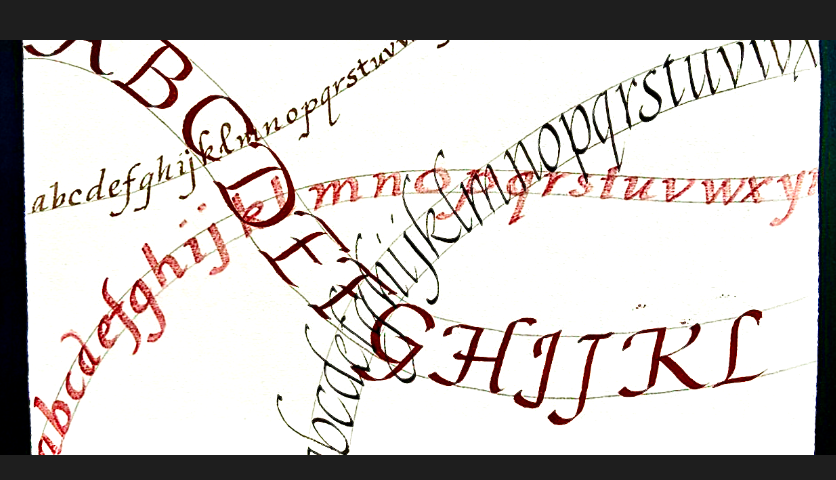 ABCDEFGHIJKL
abcdefghijklmnopqrstuvw
abcdefghijklmnopqrstuvwxy
abcdefghijklmnopqrstuvwx